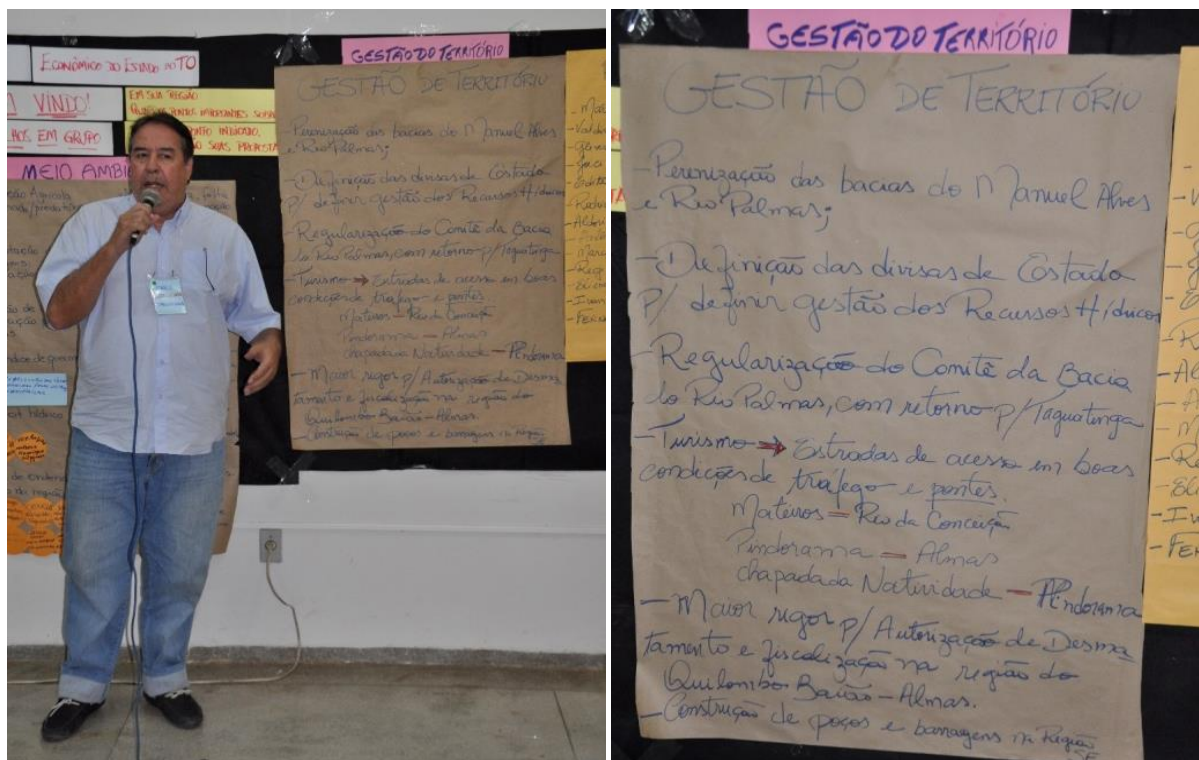 ECONÔMICO DO ESTADO DO TO
VINDO!
EM GRUPO
EM SUA REGIÃO
PONTOS IMPORTANTES
PONTO INDICADO,
SUAS PROPOSTA
MEIO AMBI
GESTÃO DO TERRITÓRIO
GESTÃO DE TERRITÓRIO
Perenização das bacias do Manuel Alves
e Rio Palmas;
- Definição das divisas de Estado
p/ definir gestão dos Recursos Hídricos
- Regularização do Comitê da Bacia
do Rio Palmas, com retorno p/ Taguatinga
- Turismo → Estradas de acesso em boas
condições de tráfego e pontes
Mateiros — Rio da Conceição
Pindorama — Almas
chapada da Natividade — Pindorama
- Maior rigor p/ Autorização de Desma
tamento e fiscalização na região do
Quilombo Baião - Almas.
- Construção de poços e barragens na Região
SE
GESTÃO DO TERRITÓRIO
GESTÃO DE TERRITÓRIO
- Perenização das bacias do Manuel Alves
e Rio Palmas;
- Definição das divisas de Estado
P/ definir gestão dos Recursos Hídricos
- Regularização do Comitê da Bacia
do Rio Palmas, com retorno p/ Taguatinga
- Turismo → Estradas de acesso em boas
condições de tráfego e pontes.
Mateiros = Rio da Conceição
Pindorama — Almas
chapada da Natividade — Pindorama
- Maior rigor p/ Autorização de Desma
tamento e fiscalização na região do
Quilombo Baião - Almas.
- Construção de poços e barragens na Região
SE